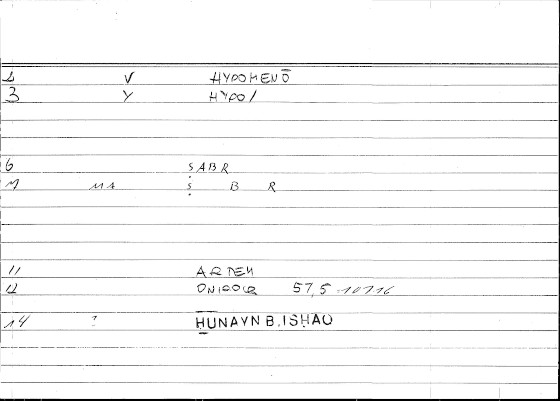 2 V HYPOMENŌ
3 Y HYPO/
6 ṢABR
7 MA Ṣ B R
11 ARTEM
12 ONIROCR 57,5 -10716
14 ? ḤUNAYN B. ISḤAQ